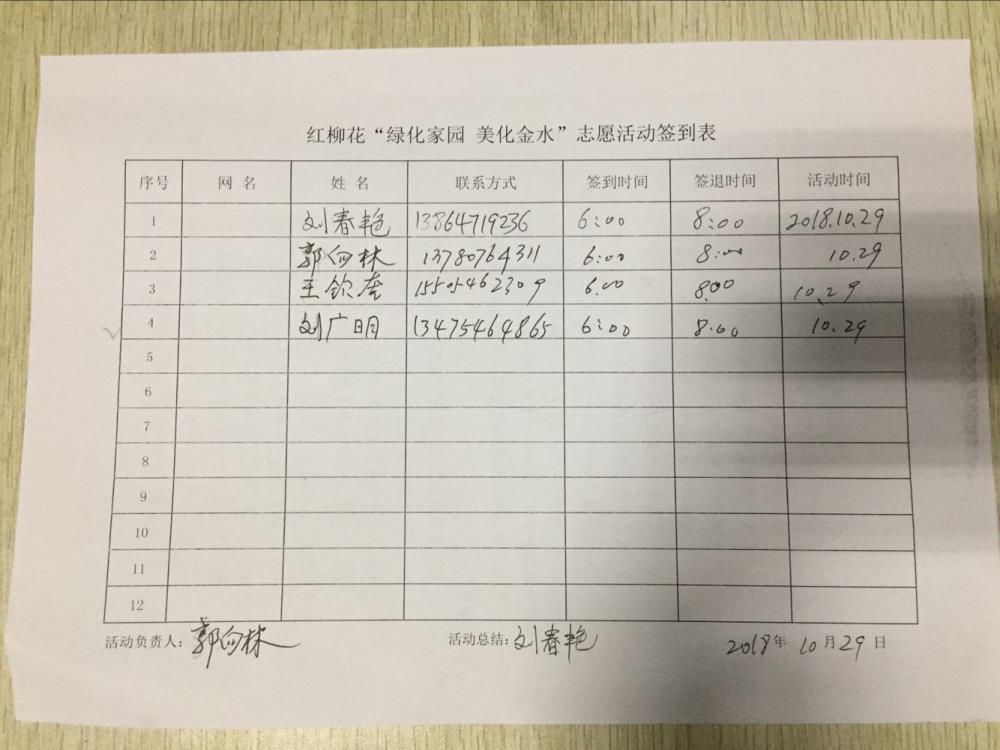 红柳花“绿化家园 美化金水”志愿活动签到表
序号 网 名 姓 名 联系方式 签到时间 签退时间 活动时间
1 刘春艳 13864719236 6:00 8:00 2018.10.29
2 郭向林 13780764311 6:00 8:00 10.29
3 王钦奎 15505462309 6.00 8.00 10.29
4 刘广明 13475464865 6:00 8.00 10.29
5
6
7
8
9
10
11
12
活动负责人:郭向林 活动总结:刘春艳 2018年 10月29日